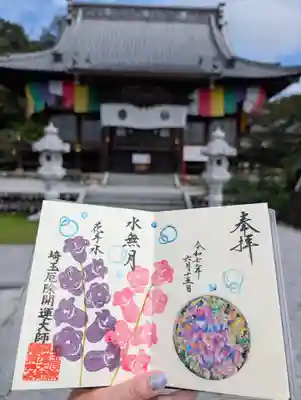 奉拝
令和七年
六月十五日
水無月
花手水
埼玉厄除開運大師